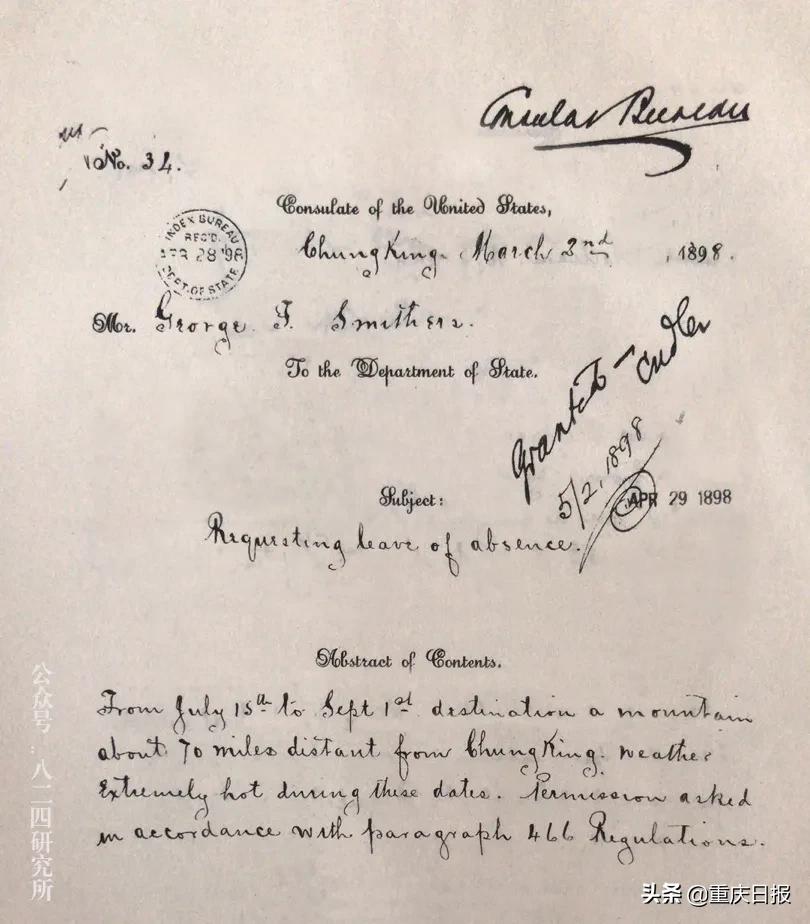 Consular Bureau
No. 34.
Consulate of the United States,
INDEX BUREAU
REC'D.
APR 28 '98
DEPT. OF STATE
ChungKing. March 2nd, 1898.
Mr. George F. Smithers.
To the Department of State.
Granted
5/2, 1898
APR 29 1898
Subject:
Requesting leave of absence.
Abstract of Contents.
From July 15th to Sept 1st destination a mountain
about 70 miles distant from ChungKing. Weather
Extremely hot during these dates. Permission asked
in accordance with paragraph 466 Regulations.
公众号:八二四研究所
头条 @重庆日报